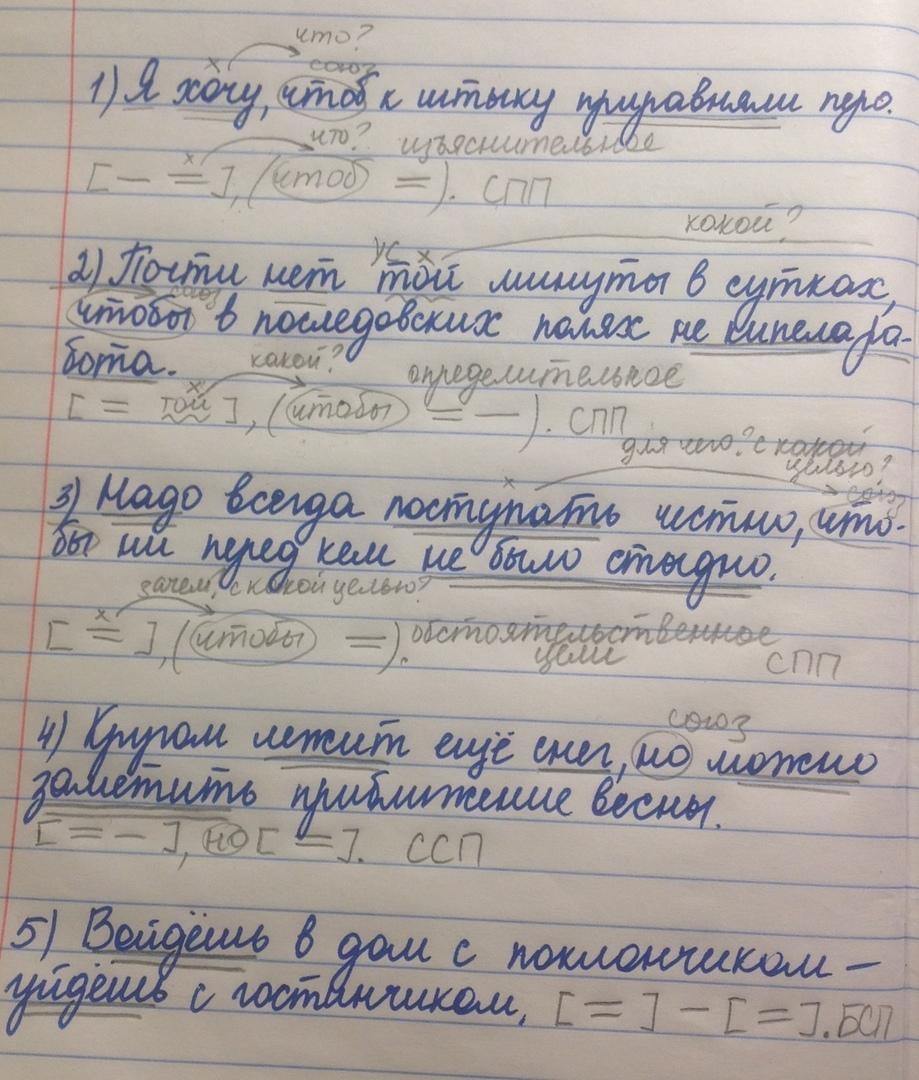 что?
х союз
1) Я хочу, чтоб к штыку приравняли перо.
х что? изъяснительное
[— =], (чтоб =). СПП
какой?
УС х
2) Почти нет той минуты в сутках,
союз
чтобы в последовских полях не кипела ра-
бота. какой? определительное
х
[= той], (чтобы = —). СПП
для чего? с какой
целью?
х союз
3) Надо всегда поступать честно, что-
бы ни перед кем не было стыдно.
зачем, с какой целью?
х
[=], (чтобы =). обстоятельственное
цели СПП
союз
4) Кругом лежит ещё снег, но можно
заметить приближение весны.
[= —], но [=]. ССП
5) Войдёшь в дом с поклончиком —
уйдёшь с гостинчиком, [=] — [=]. БСП